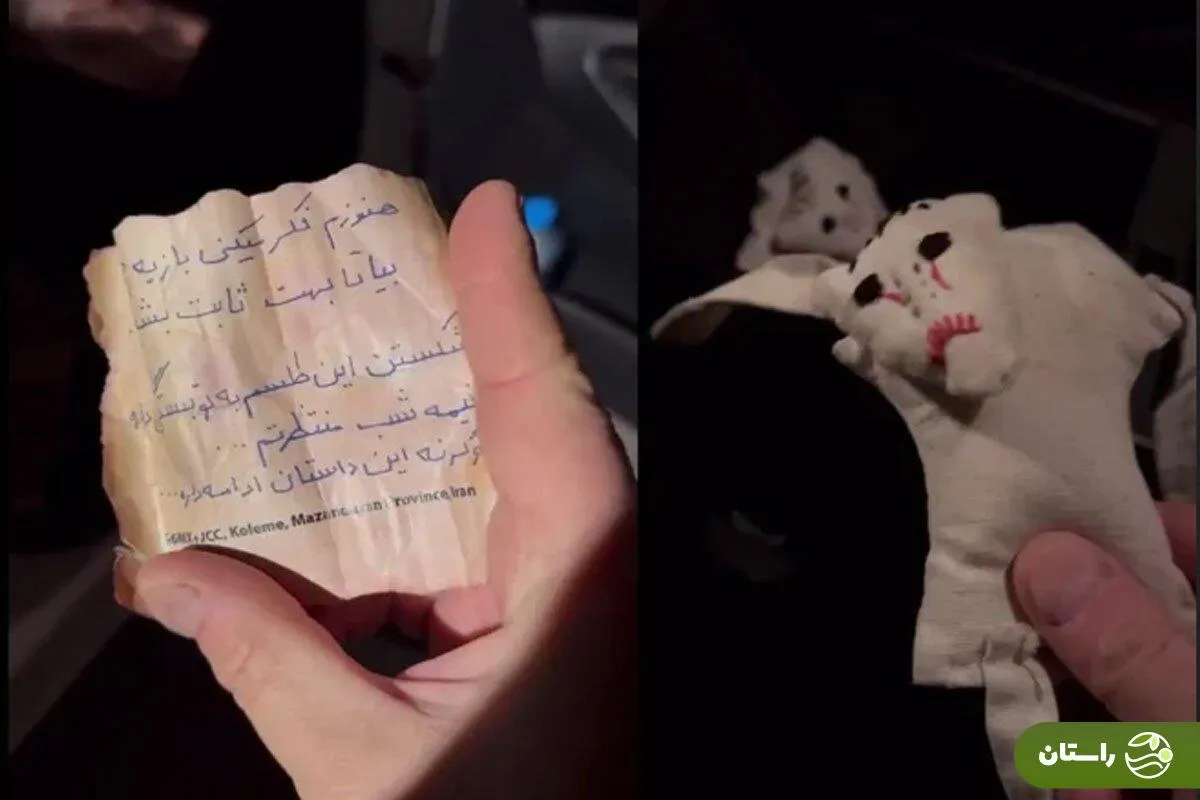 هنوزم فکر میکنی بازیه؟
بیا تا بهت ثابت بشه
شکستن این طلسم به تو بستگی داره
نیمه شب منتظرتم ...
وگرنه این داستان ادامه داره ...
JCC, Koleme, Mazandaran Province, Iran
راستان